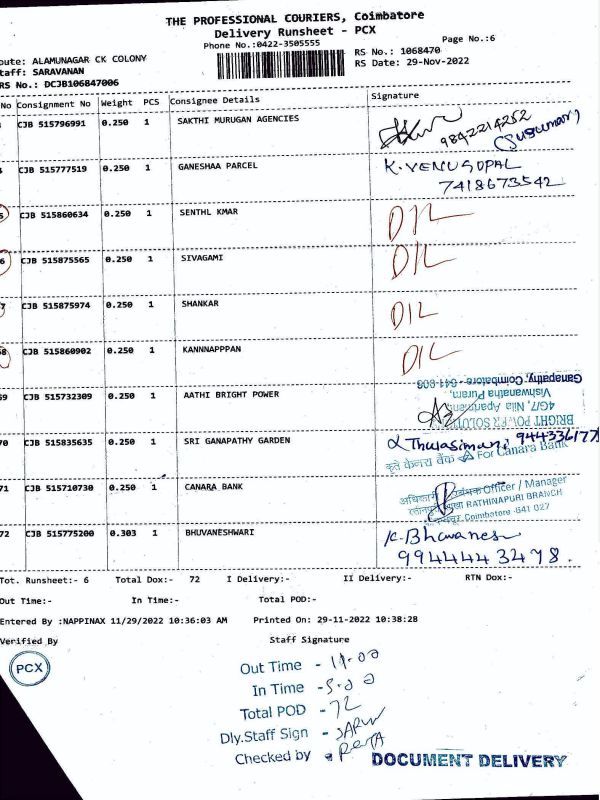 THE PROFESSIONAL COURIERS, Coimbatore
Delivery Runsheet - PCX
Phone No.:0422-3505555
Page No.:6
oute: ALAMUNAGAR CK COLONY
taff: SARAVANAN
RS No.: DCJB106847006
RS No.: 1068470
RS Date: 29-Nov-2022
No Consignment No Weight PCS Consignee Details Signature
CJB 515796991 0.250 1 SAKTHI MURUGAN AGENCIES 9842214252
CJB 515777519 0.250 1 GANESHAA PARCEL K. VENUGOPAL
7418673542
5 CJB 515860634 0.250 1 SENTHL KMAR D/L
6 CJB 515875565 0.250 1 SIVAGAMI D/L
7 CJB 515875974 0.250 1 SHANKAR D/L
8 CJB 515860902 0.250 1 KANNNAPPPAN D/L
Ganapathy, Coimbatore - 641-006
Vishwanatha Puram,
4G/7, Nila Apartment,
59 CJB 515732309 0.250 1 AATHI BRIGHT POWER
70 CJB 515835635 0.250 1 SRI GANAPATHY GARDEN Thulasimani
For Canara Bank
71 CJB 515710730 0.250 1 CANARA BANK
Officer / Manager
RATHINAPURI BRANCH
Coimbatore -641 027
72 CJB 515775200 0.303 1 BHUVANESHWARI K-Bhuvanes
9944443478.
Tot. Runsheet:- 6 Total Dox:- 72 I Delivery:- II Delivery:- RTN Dox:-
Out Time:- In Time:- Total POD:-
Entered By :NAPPINAX 11/29/2022 10:36:03 AM Printed On: 29-11-2022 10:38:28
Verified By Staff Signature
PCX
Out Time - 11.00
In Time - 5.00
Total POD - 72
Dly.Staff Sign -
Checked by
DOCUMENT DELIVERY